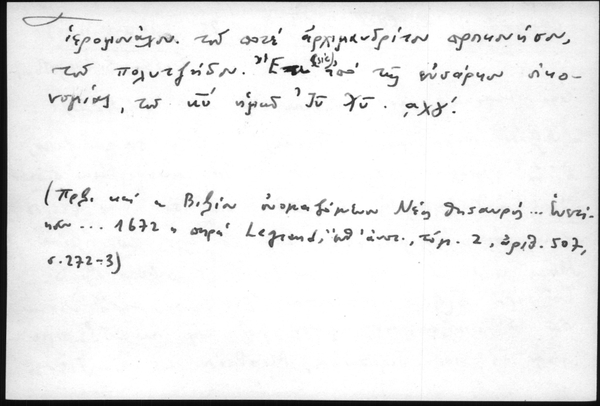 ἱερομονάχου. τοῦ ποτέ ἀρχιμανδρίτου
τοῦ πολυτζήδον. Ἔτει (sic), ἀπό τῆς ἐνσάρκου οἰκο-
νομίας, τοῦ κῦ ἡμῶν Ἰῦ Χῦ. ͵αχγ΄.
(Πρβ. καί Βιβλίον ὀνομαζόμενον Νέος θησαυρός... Ἐνετί-
ησιν... 1672 παρά Legrand, ἔνθ' ἀνωτ., τόμ. 2, ἀριθ. 507,
σ. 272-3)